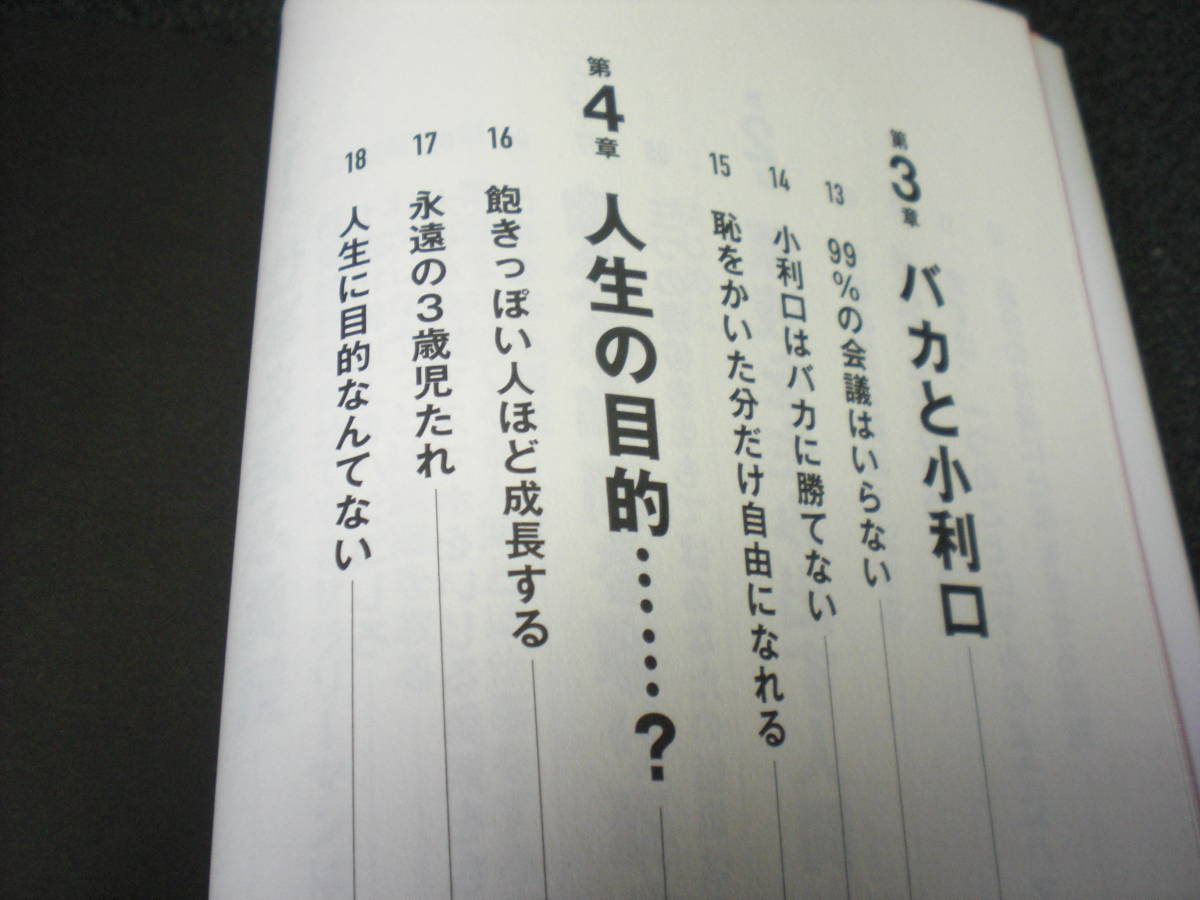 第3章 バカと小利口
13 99%の会議はいらない
14 小利口はバカに勝てない
15 恥をかいた分だけ自由になれる
第4章 人生の目的……?
16 飽きっぽい人ほど成長する
17 永遠の3歳児たれ
18 人生に目的なんてない